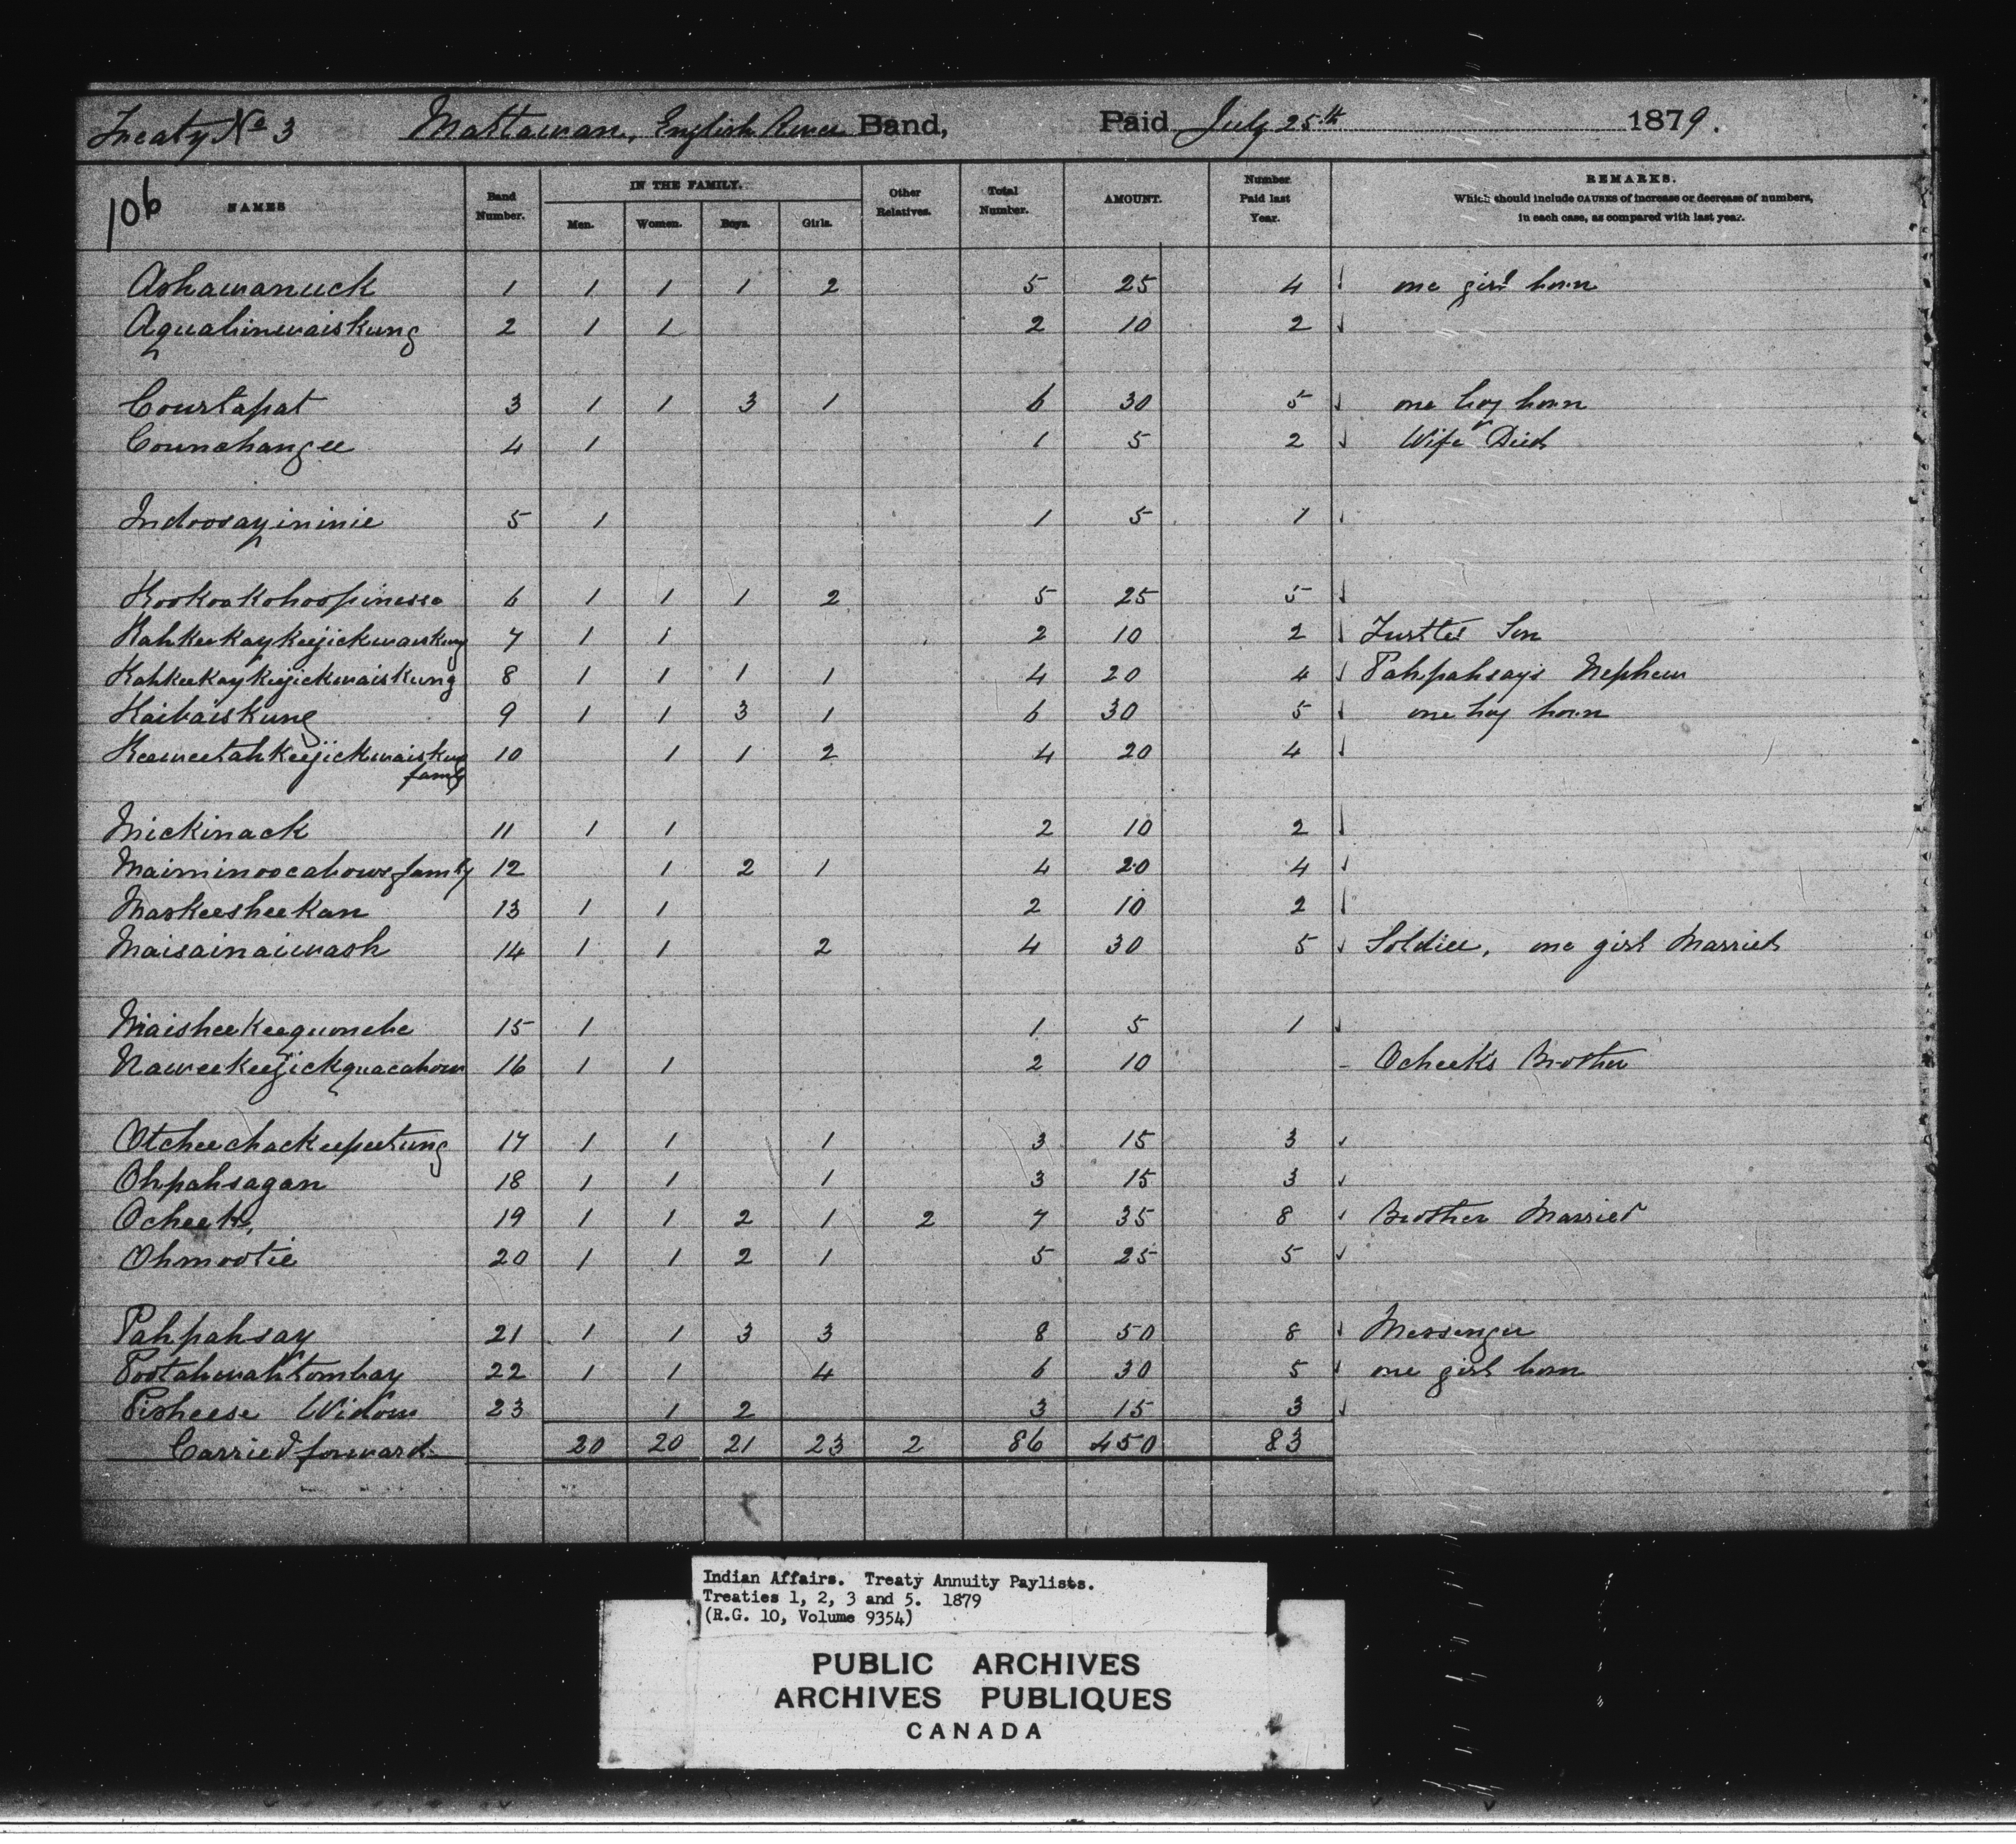 Treaty No 3 Mattawan, English River Band, Paid July 25th 1879.
106 NAMES Band Number. IN THE FAMILY. Men. Women. Boys. Girls. Other Relatives. Total Number. AMOUNT. Number Paid last Year. REMARKS. Which should include CAUSES of increase or decrease of numbers, in each case, as compared with last year.
Ashawanuck 1 1 1 1 2 5 25 4 one girl born
Aquahinwaiskung 2 1 1 2 10 2
Courtapat 3 1 1 3 1 6 30 5 one boy born
Counchangee 4 1 1 5 2 Wife Died
Indoosayininie 5 1 1 5 1
Kookookohoopinesse 6 1 1 1 2 5 25 5
Kahkeekaykeejickwaiskung 7 1 1 2 10 2 Turtles Son
Kahkeekaykeejickwaiskung 8 1 1 1 1 4 20 4 Pahpahsays Nephew
Kaibaiskung 9 1 1 3 1 6 30 5 one boy born
Keeweetahkeejickwaiskung 10 1 1 2 4 20 4
family
Mickinack 11 1 1 2 10 2
Maiminoocahows family 12 1 2 1 4 20 4
Maskeesheekan 13 1 1 2 10 2
Maisainaiwash 14 1 1 2 4 30 5 Soldier, one girl Married
Maisheekeequonebe 15 1 1 5 1
Naweekeejickquacahow 16 1 1 2 10 - Ocheek's Brother
Otcheechackeepeetung 17 1 1 1 3 15 3
Ohpahsagan 18 1 1 1 3 15 3
Ocheek, 19 1 1 2 1 2 7 35 8 Brother Married
Ohmootie 20 1 1 2 1 5 25 5
Pahpahsay 21 1 1 3 3 8 50 8 Messenger
Pootahwahtombay 22 1 1 4 6 30 5 one girl born
Pisheese Widow 23 1 2 3 15 3
Carried forward 20 20 21 23 2 86 450 83
Indian Affairs. Treaty Annuity Paylists.
Treaties 1, 2, 3 and 5. 1879
(R.G. 10, Volume 9354)
PUBLIC ARCHIVES
ARCHIVES PUBLIQUES
CANADA